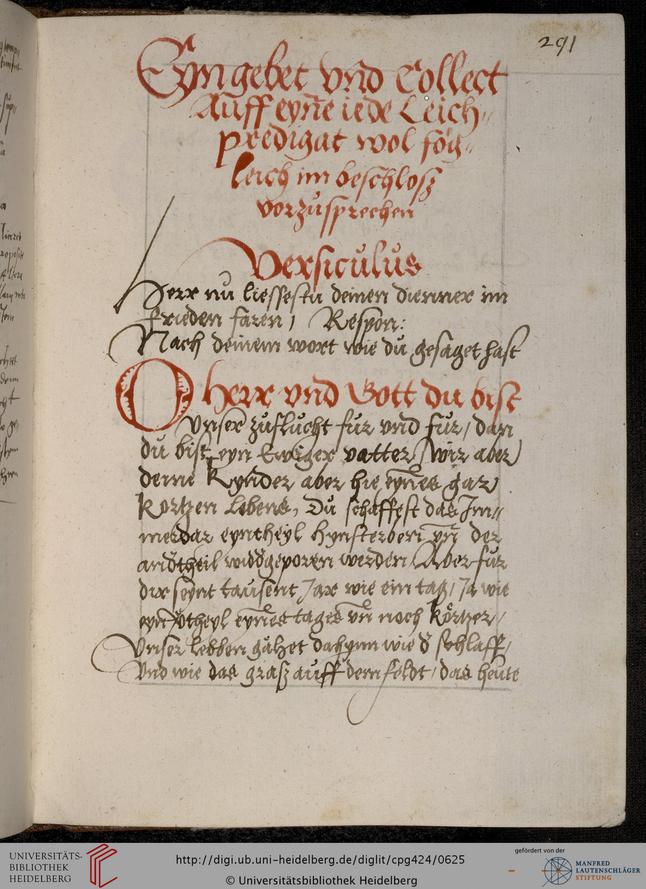 291
Eyn gebet vnd Collect
Auff eyne iede Leich-
predigat wol fög-
leich im beschlosz
vorzusprechen
Versiculus
Herr nu liessestu deinen diener im
frieden faren / Respon:
Nach deinem wort wie du gesaget hast
O herr vnd Gott du bist
Vnser zuflucht fur vnd fur / dan
du bist eyn Ewiger vatter / wir aber
deine Kynder aber hie eynes gar
Kortzen lebens, Du schaffest das Im-
merdar eyntheyl hynsterben vn der
andtheil widdgeporen werden / Aber fur
dir seynt tausent Jar wie ein tag / Ja wie
eyn theyl eynes tages vn noch körtzer /
Vnser lebben gähet dahynn wie d schlaff /
Vnd wie das grasz auff dem feldt / das heute
UNIVERSITÄTS-
BIBLIOTHEK
HEIDELBERG
http://digi.ub.uni-heidelberg.de/diglit/cpg424/0625
© Universitätsbibliothek Heidelberg
gefördert von der
MANFRED
LAUTENSCHLÄGER
STIFTUNG